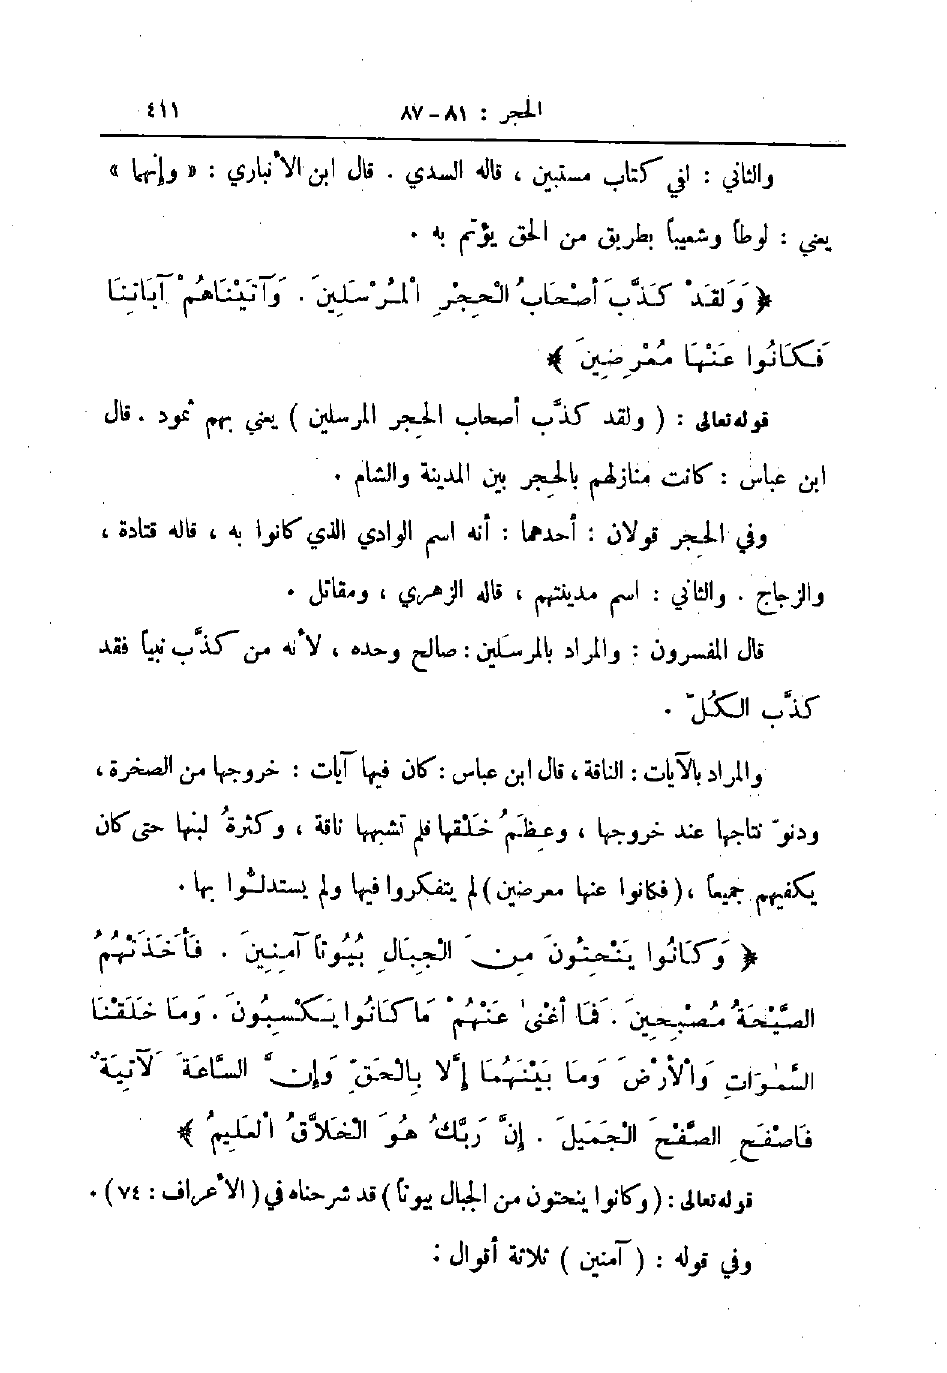 الحجر : ٨١ - ٨٧ ٤١١
والثاني : لفي كتاب مستبين ، قاله السدي . قال ابن الأنباري : « وإنهما »
يعني : لوطاً وشعيباً بطريق من الحق يؤتم به .
﴿ وَلَقَدْ كَذَّبَ أَصْحَابُ الْحِجْرِ الْمُرْسَلِينَ . وَآتَيْنَاهُمْ آيَاتِنَا
فَكَانُوا عَنْهَا مُعْرِضِينَ ﴾
قوله تعالى : ( ولقد كذَّب أصحاب الحِجر المرسلين ) يعني بهم ثمود . قال
ابن عباس : كانت منازلهم بالحِجر بين المدينة والشام .
وفي الحِجر قولان : أحدهما : أنه اسم الوادي الذي كانوا به ، قاله قتادة ،
والزجاج . والثاني : اسم مدينتهم ، قاله الزهري ، ومقاتل .
قال المفسرون : والمراد بالمرسَلين : صالح وحده ، لأنه من كذَّب نبياً فقد
كذَّب الكُلّ .
والمراد بالآيات : الناقة ، قال ابن عباس : كان فيها آيات : خروجها من الصخرة ،
ودنوّ نتاجها عند خروجها ، وعِظَمُ خَلْقها فلم تشبهها ناقة ، وكثرةُ لبنها حتى كان
يكفيهم جميعاً ، ( فكانوا عنها معرضين ) لم يتفكروا فيها ولم يستدلُّوا بها .
﴿ وَكَانُوا يَنْحِتُونَ مِنَ الْجِبَالِ بُيُوتاً آمِنِينَ . فَأَخَذَتْهُمُ
الصَّيْحَةُ مُصْبِحِينَ . فَمَا أَغْنىٰ عَنْهُمْ مَا كَانُوا يَكْسِبُونَ . وَمَا خَلَقْنَا
السَّمٰوَاتِ وَالْأَرْضَ وَمَا بَيْنَهُمَا إِلَّا بِالْحَقِّ وَإِنَّ السَّاعَةَ لَآتِيَةٌ
فَاصْفَحِ الصَّفْحَ الْجَمِيلَ . إِنَّ رَبَّكَ هُوَ الْخَلَّاقُ الْعَلِيمُ ﴾
قوله تعالى : ( وكانوا ينحتون من الجبال بيوتاً ) قد شرحناه في ( الأعراف : ٧٤ ) .
وفي قوله : ( آمنين ) ثلاثة أقوال :